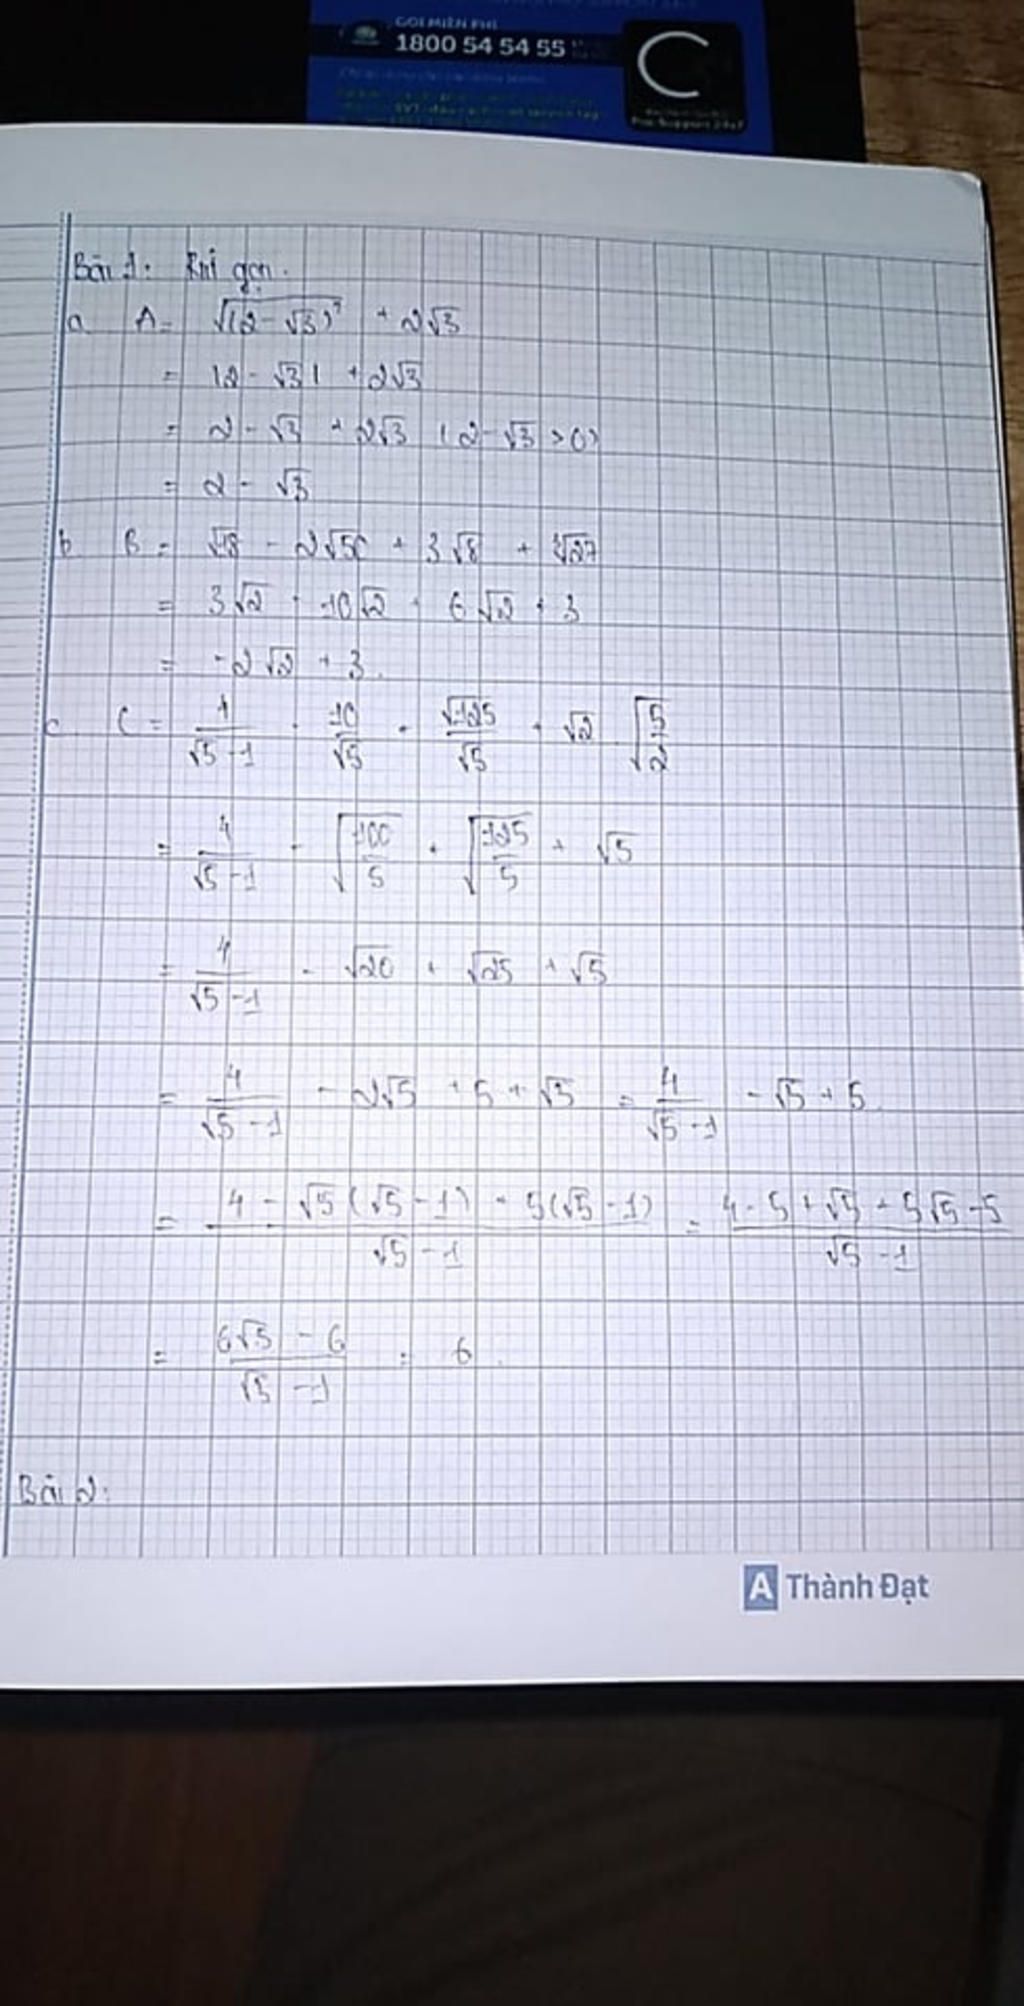 GỌI MIỄN PHÍ
1800 54 54 55
Pro Support 24x7
Bài 1: Rút gọn.
a A = √(2 - √3)² + 2√3
= |2 - √3| + 2√3
= 2 - √3 + 2√3 (2 - √3 > 0)
= 2 - √3
b B = √18 - 2√50 + 3√8 + ∛27
= 3√2 - 10√2 + 6√2 + 3
= -2√2 + 3.
c C = 4/(√5 - 1) - 10/√5 + √125/√5 + √2 √(5/2)
= 4/(√5 - 1) - √(100/5) + √(125/5) + √5
= 4/(√5 - 1) - √20 + √25 + √5
= 4/(√5 - 1) - 2√5 + 5 + √5 = 4/(√5 - 1) - √5 + 5.
= (4 - √5(√5 - 1) + 5(√5 - 1))/(√5 - 1) = (4 - 5 + √5 + 5√5 - 5)/(√5 - 1)
= (6√5 - 6)/(√5 - 1) = 6.
Bài 2:
A Thành Đạt